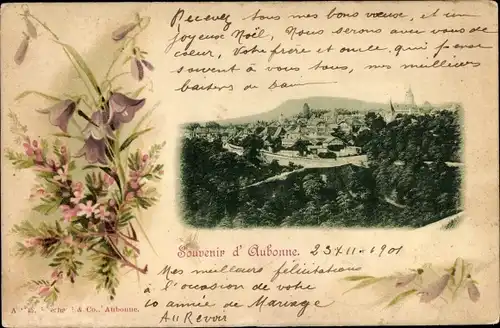 Recevez tous mes bons voeux, et un
joyeux Noël, Nous serons avec vous de
coeur, Votre frère et oncle qui pense
souvent à vous tous, mes meilleurs
baisers de
Souvenir d'Aubonne. 23 XII - 1901
Mes meilleurs félicitations
à l'occasion de votre
10 année de Mariage
Au Revoir
& Co., Aubonne.